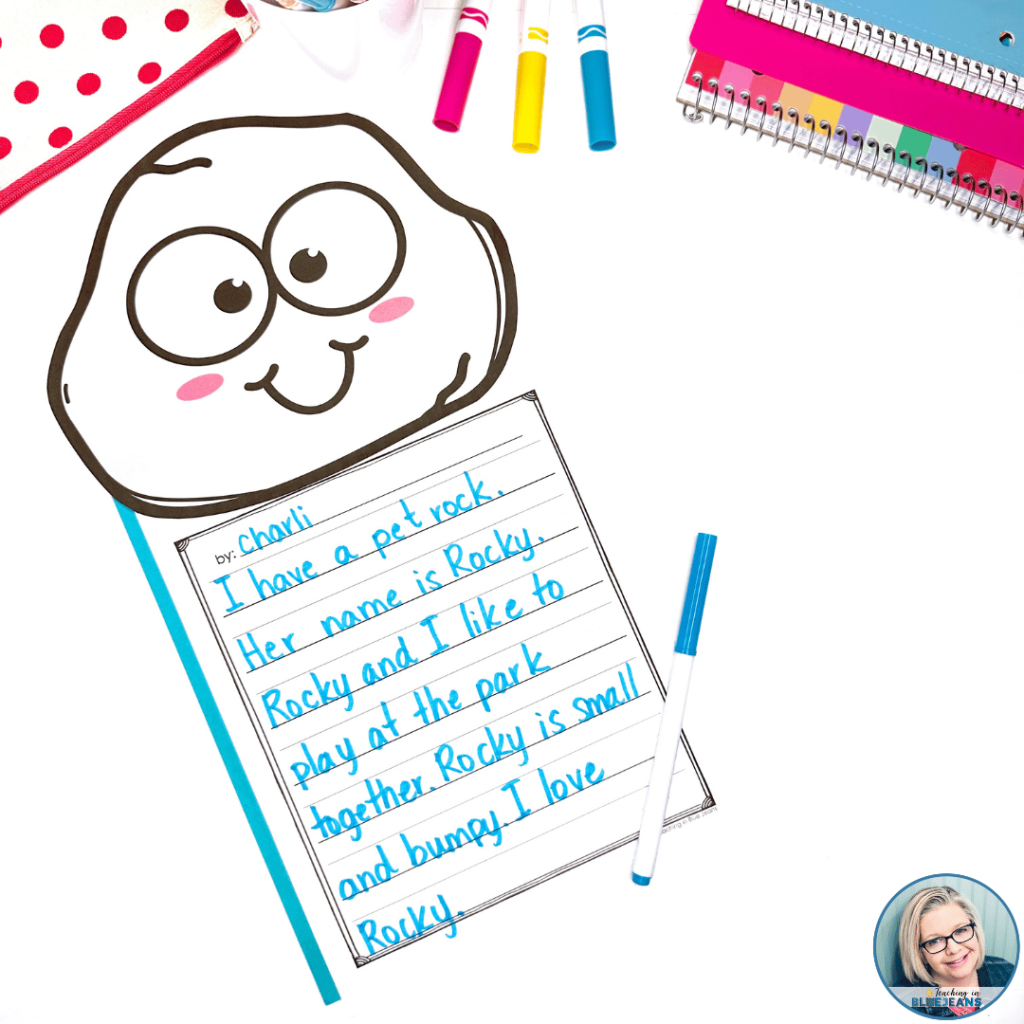 by: charli
I have a pet rock.
Her name is Rocky.
Rocky and I like to
play at the park
together. Rocky is small
and bumpy. I love
Rocky.
Teaching in Blue Jeans
Teaching in
BLUE JEANS